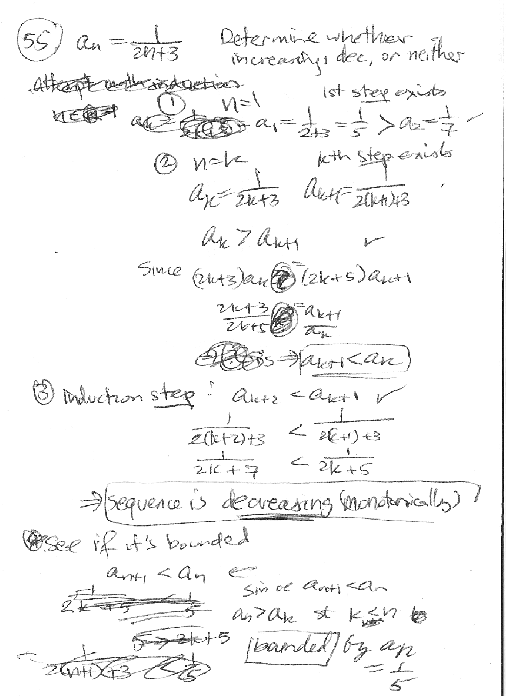 55 an = 1/(2n+3) Determine whether
increasing, dec, or neither
Attempt with induction
① n=1 1st step exists
a1 = 1/(2+3) = 1/5 > a2 = 1/7 ✓
② n=k kth step exists
ak = 1/(2k+3) ak+1 = 1/(2(k+1)+3)
ak > ak+1 ✓
Since (2k+3)ak = (2k+5)ak+1
(2k+3)/(2k+5) = ak+1/ak
⇒ ak+1 < ak
③ induction step: ak+2 < ak+1 ✓
1/(2(k+2)+3) < 1/(2(k+1)+3)
1/(2k+7) < 1/(2k+5)
⇒ sequence is decreasing (monotonically)
See if it's bounded
an+1 < an ←
since an+1 < an
1/(2k+5) 1/5
an > ak st k ≤ n
5 > 2k+5
bounded by an
= 1/5
1/(2(n+1)+3) < 1/5